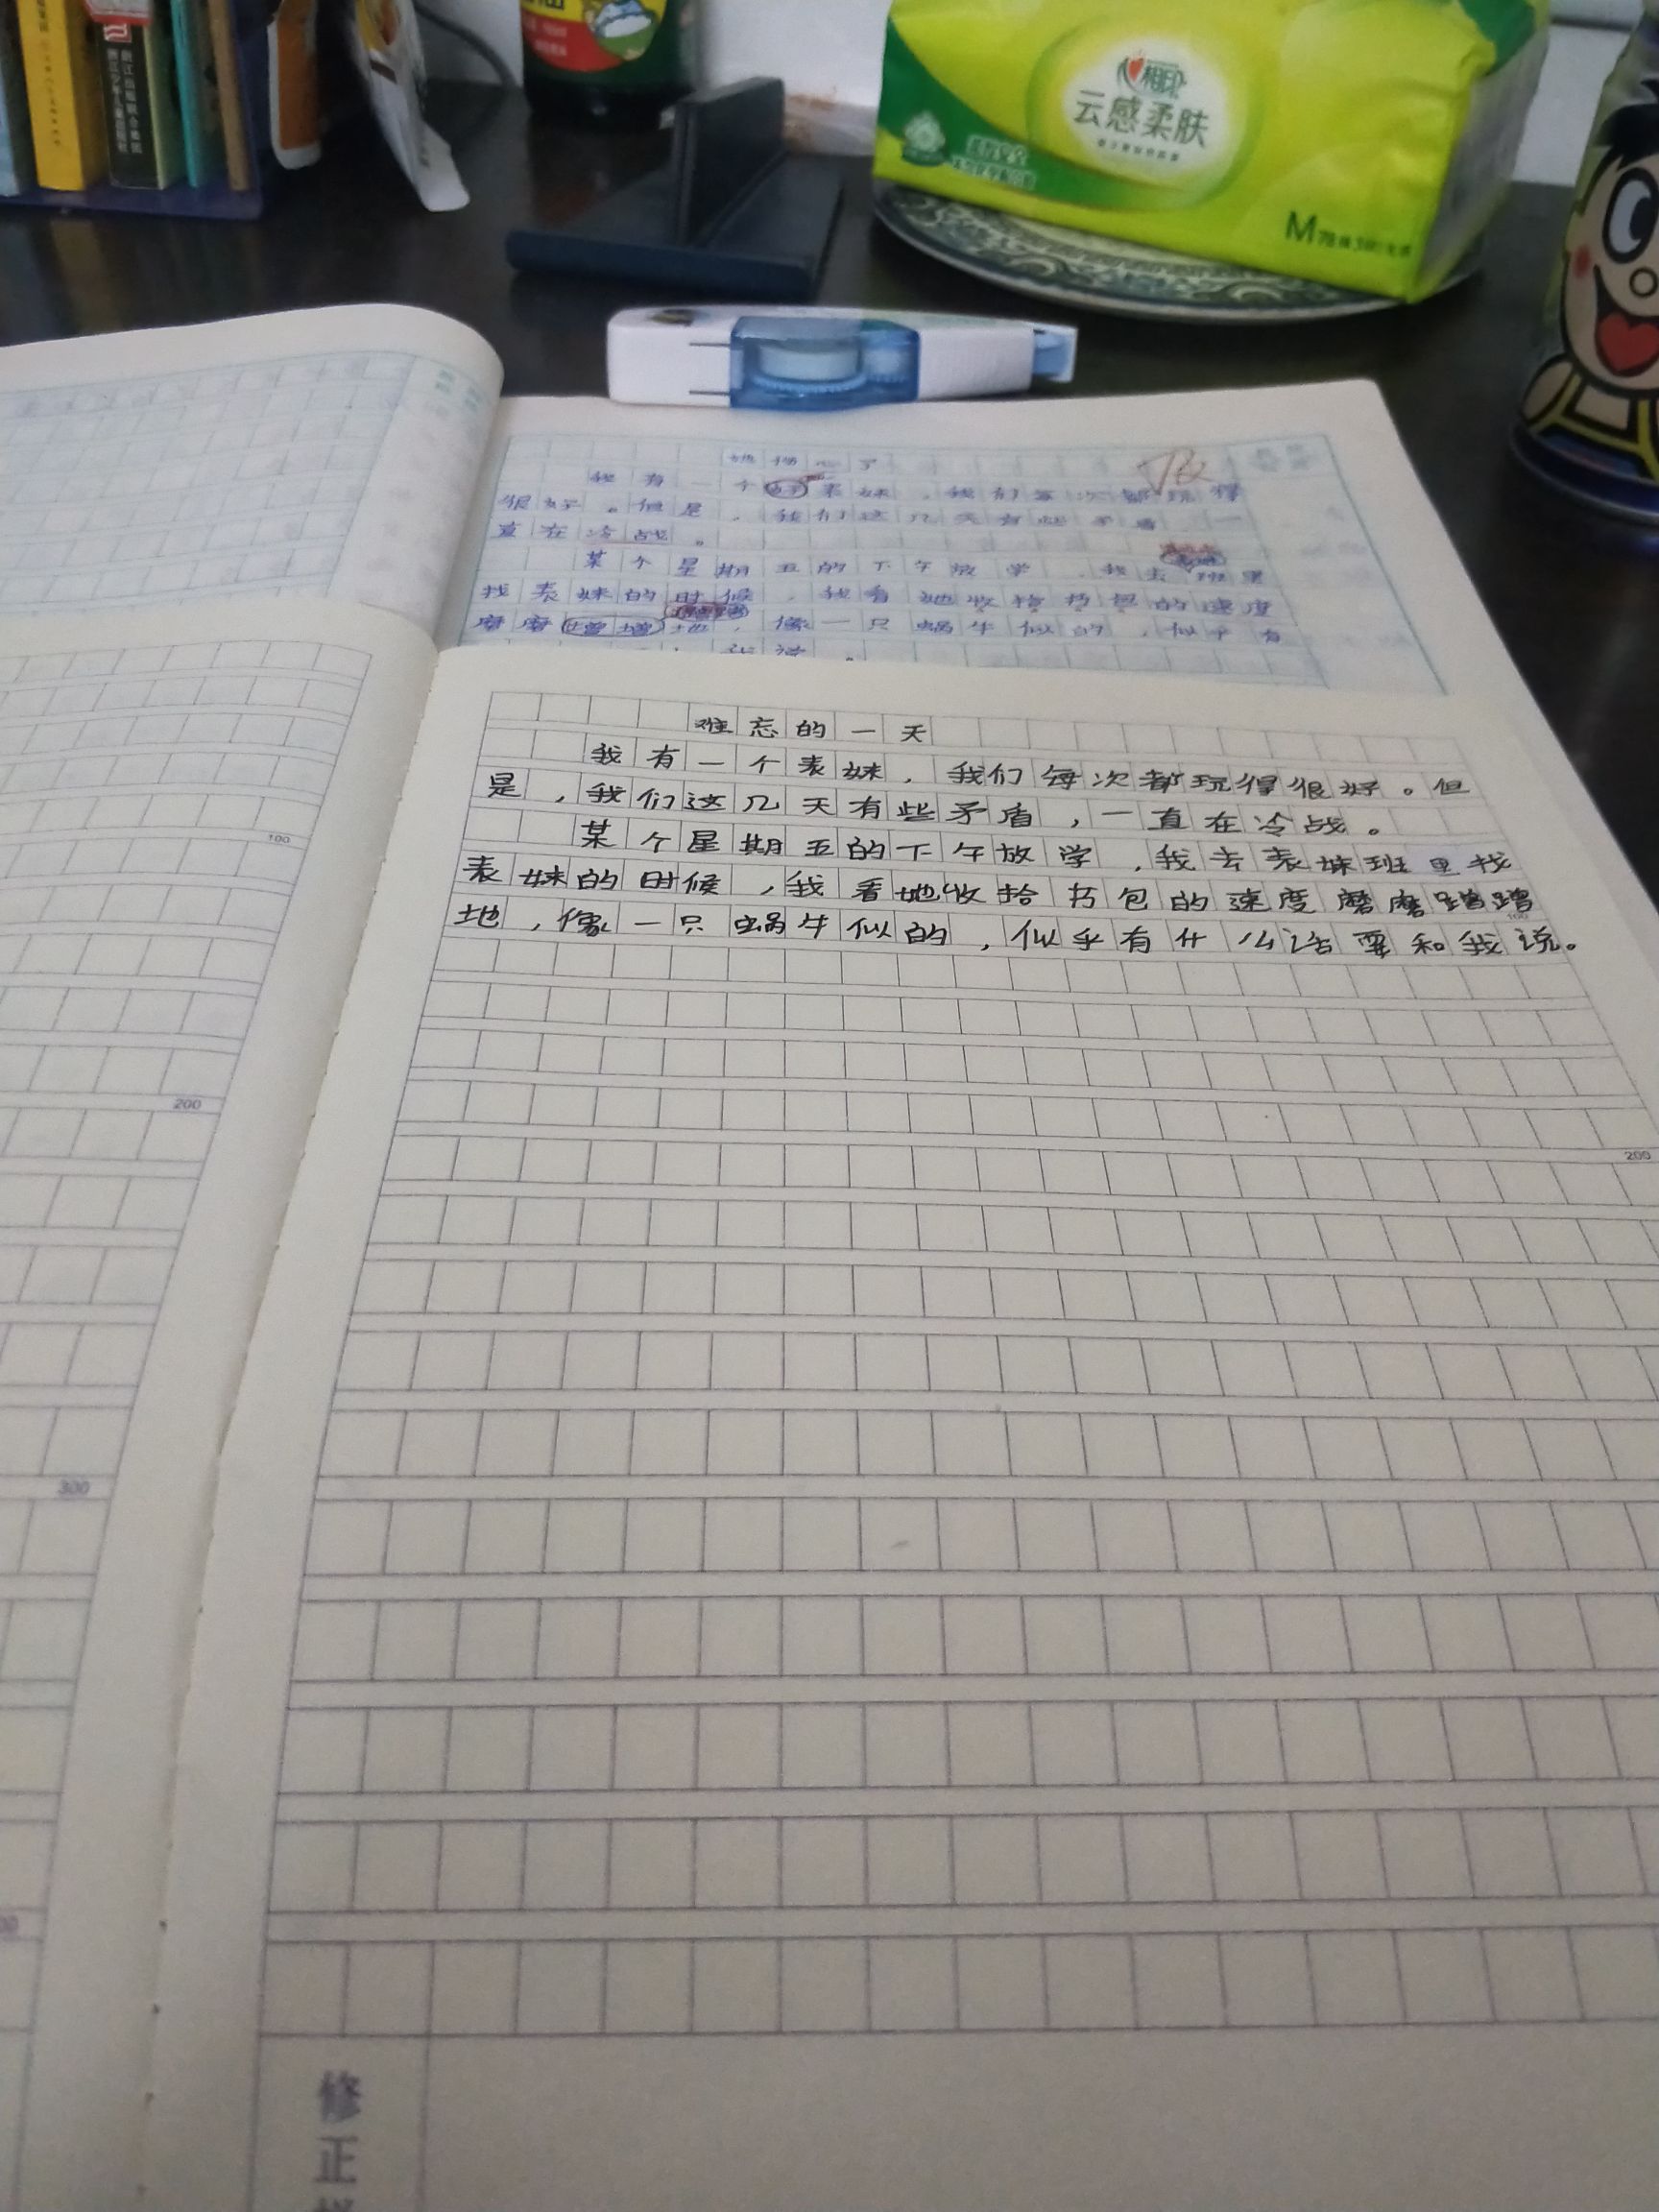 浙江出版联合集团
相印
云感柔肤
M
我有一个好表妹，我们每次都玩得
很好。但是，我们这几天有些矛盾，一
直在冷战。
某个星期五的下午放学，我去班里
找表妹的时候，我看她收拾书包的速度
磨磨增增地，像一只蜗牛似的，似乎有
我说。
难忘的一天
我有一个表妹，我们每次都玩得很好。但
是，我们这几天有些矛盾，一直在冷战。
某个星期五的下午放学，我去表妹班里找
表妹的时候，我看她收拾书包的速度磨磨蹭蹭
地，像一只蜗牛似的，似乎有什么话要和我说。
100
100
200
200
300
修
正